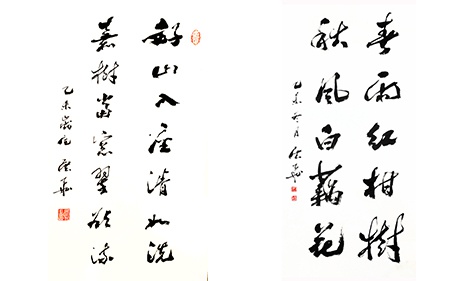 好山入座清如洗
嘉樹當窗翠欲流
乙未歲
春雨紅柑樹
秋風白藕花
乙未月